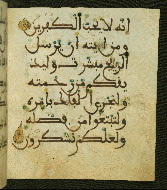 انه لا يحب الكفرين
ومن ايته ان يرسل
الرياح مبشرت وليذ
يقكم من رحمته
ولتجري الفلك بامره
ولتبتغوا من فضله
ولعلكم تشكرون